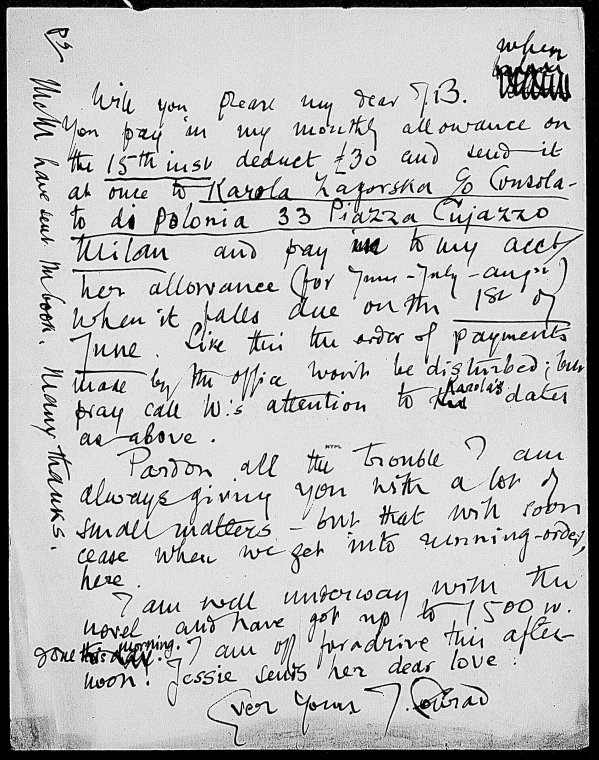 P2
when
Will you please my dear J.B.
You pay in my monthly allowance on
the 15th inst deduct £30 and send it
at once to Karola Zagorska c/o Consola-
to di Polonia 33 Piazza Cujazzo
Milan and pay to my acct/
her allowance (for June-July-augst)
when it falls due on the 1st of
June. Like this the order of payments
made by the office won't be disturbed; but
pray call W:'s attention to Karola's dates
as above.
Pardon all the trouble I am
always giving you with a lot of
small matters – but that will soon
cease when we get into running-order,
here.
I am well underway with the
novel and have got up to 1500 w.
done this morning. I am off for a drive this after-
noon. Jessie sends her dear love.
Ever Yours J. Conrad
have sent me book. Many thanks.
NYPL